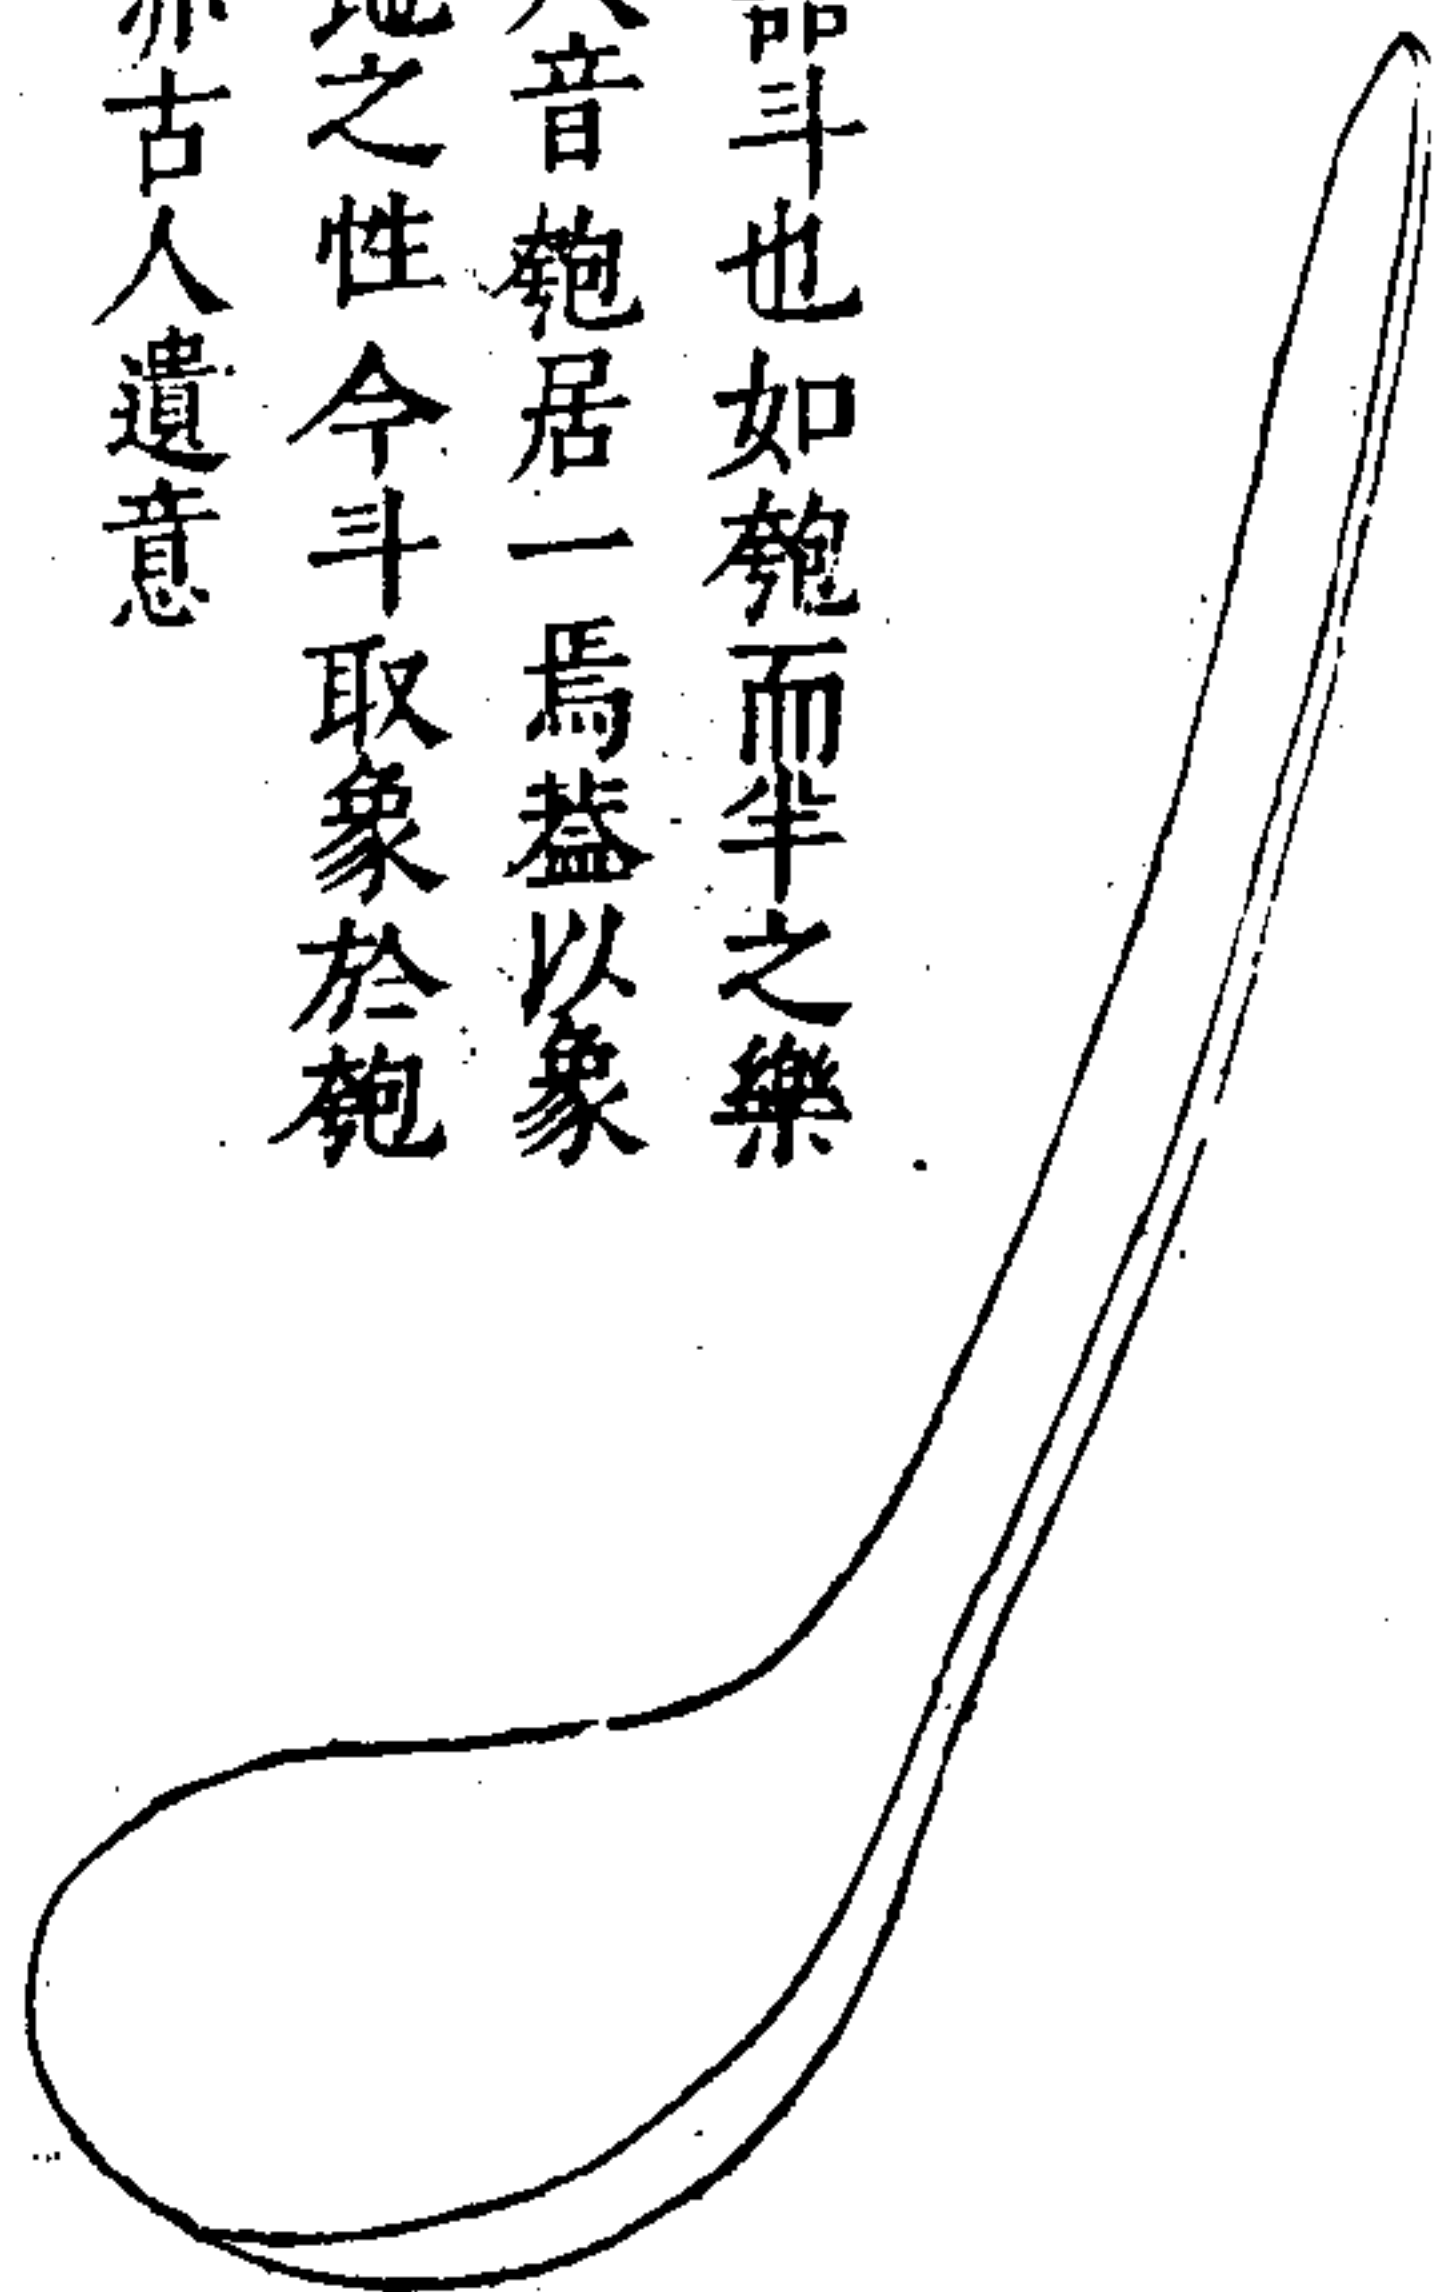 斗也如匏而半之樂
八音匏居一焉葢以象
地之性今斗取象於匏
亦古人遺意